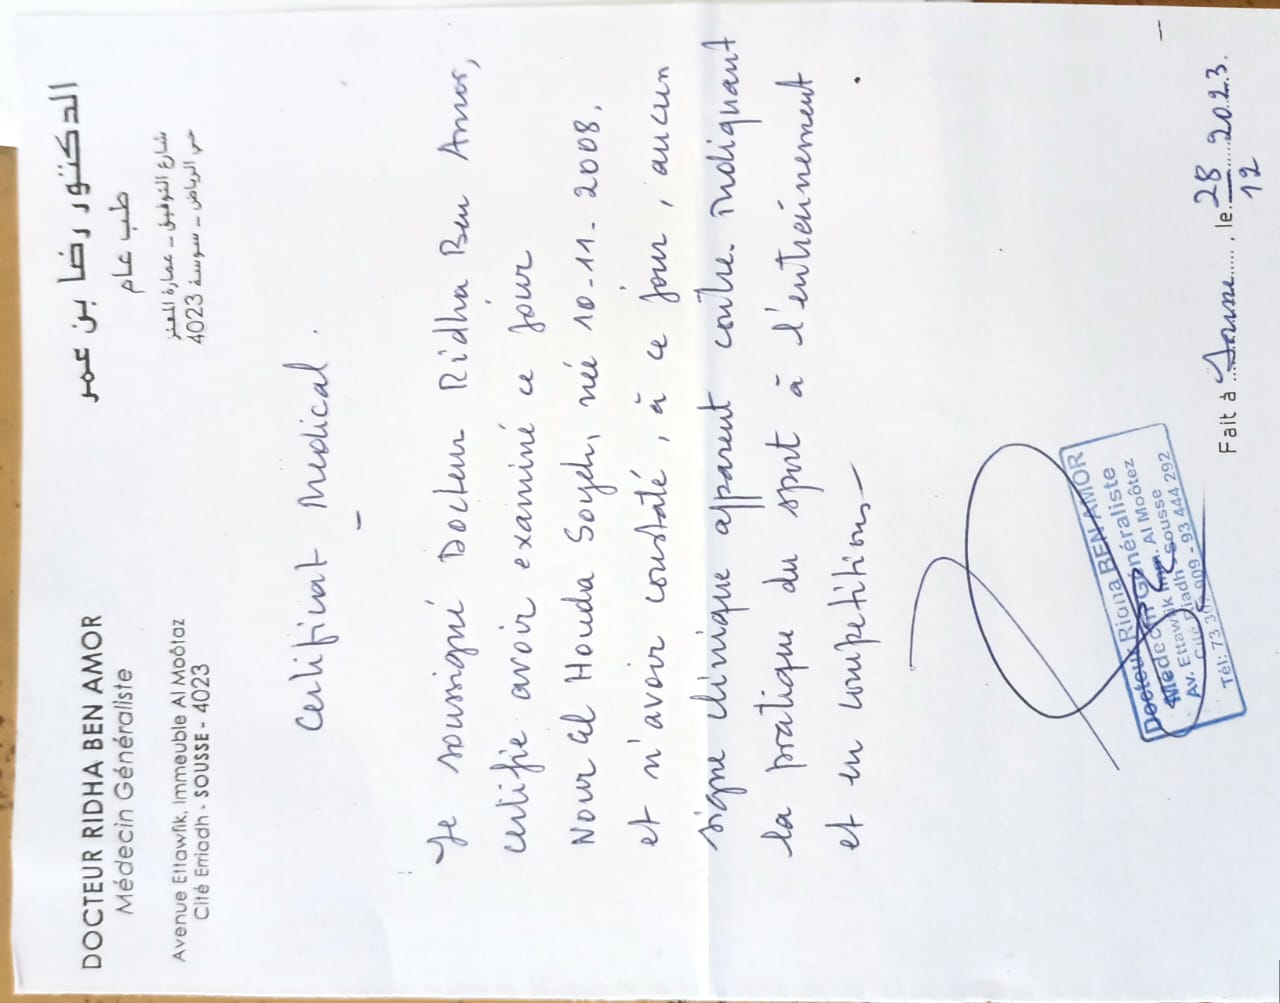 DOCTEUR RIDHA BEN AMOR
Médecin Généraliste
Avenue Ettawfik, Immeuble Al Moôtaz
Cité Erriadh - SOUSSE - 4023
الدكتور رضا بن عمر
طب عام
شارع التوفيق - عمارة المعتز
حي الرياض - سوسة 4023
Certificat Medical.
Je soussigné Docteur Ridha Ben Amor,
certifie avoir examiné ce jour
Nour El Houda Sayeh, née 10-11-2008,
et n'avoir constaté, à ce jour, aucun
signe clinique apparent contre-indiquant
la pratique du sport à l'entrainement
et en compétitions
Docteur Ridha BEN AMOR
Médecin Généraliste
Av. Ettawfik Imm. Al Moôtez
Cité Riadh Sousse
Tél: 73 909 - 93 444 292
Fait à Sousse, le 28 2023.
12